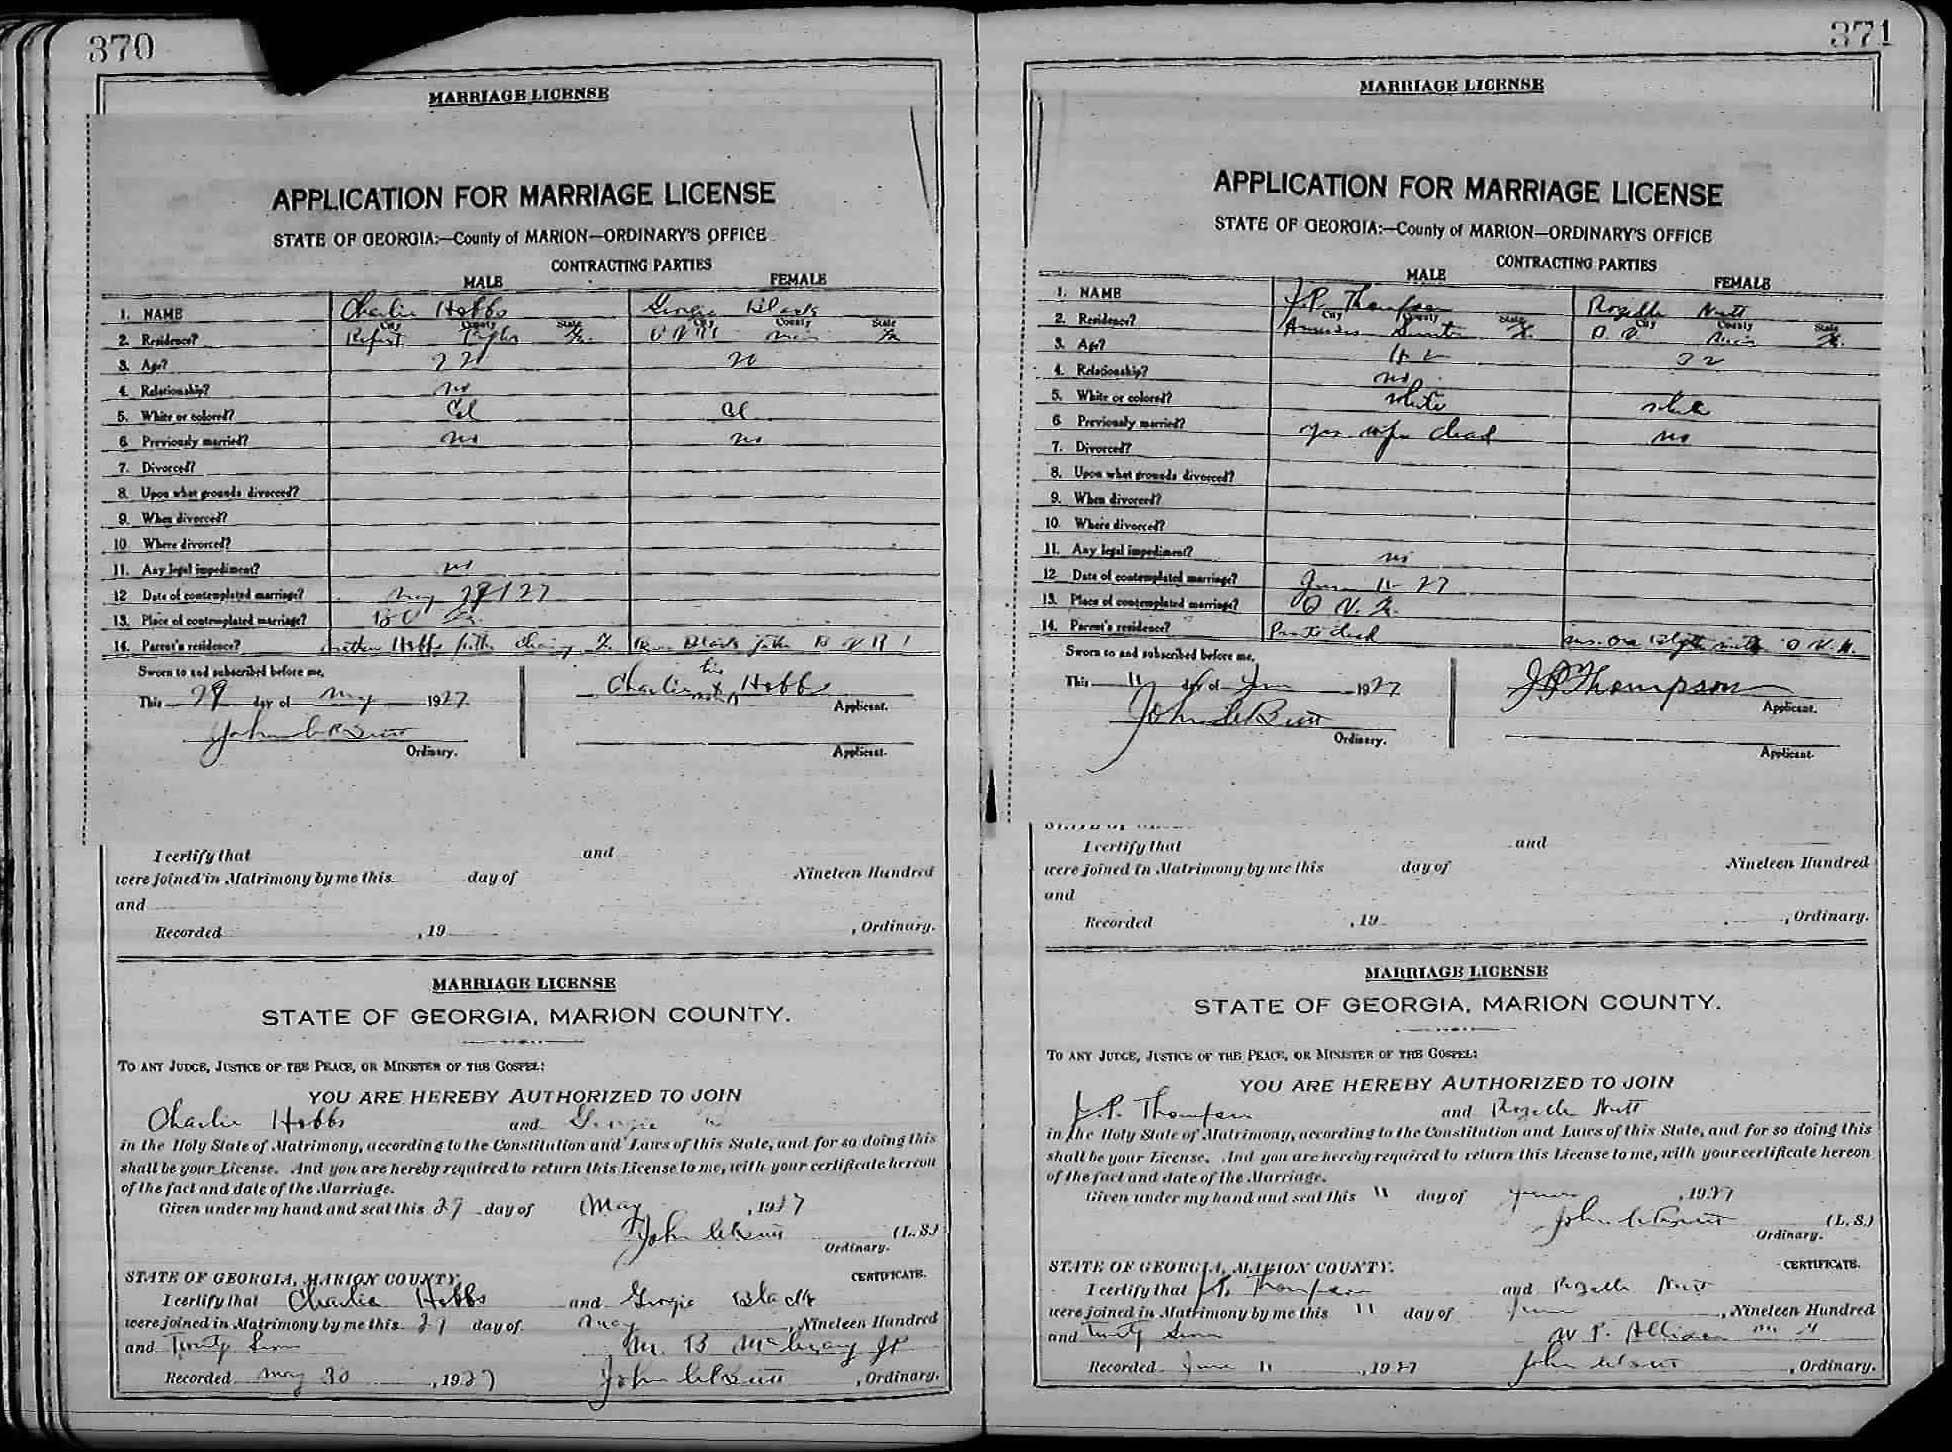 370
MARRIAGE LICENSE
APPLICATION FOR MARRIAGE LICENSE
STATE OF GEORGIA:—County of MARION—ORDINARY'S OFFICE
CONTRACTING PARTIES
MALE FEMALE
1. NAME Charlie Hobbs Georgie Black
City County State City County State
2. Residence? Ga
3. Age? 20
4. Relationship? no
5. White or colored? Col Col
6. Previously married? no no
7. Divorced?
8. Upon what grounds divorced?
9. When divorced?
10. Where divorced?
11. Any legal impediment? no
12 Date of contemplated marriage? May 29 1927
13. Place of contemplated marriage? B V Ga.
14. Parent's residence? Hobbs father Black father B V R 1
Sworn to and subscribed before me,
This 29 day of May 1927
his
Charlie x Hobbs
mark
Applicant.
John C Butt
Ordinary.
Applicant.
I certify that and
were joined in Matrimony by me this day of Nineteen Hundred
and
Recorded , 19 , Ordinary.
MARRIAGE LICENSE
STATE OF GEORGIA, MARION COUNTY.
TO ANY JUDGE, JUSTICE OF THE PEACE, OR MINISTER OF THE GOSPEL:
YOU ARE HEREBY AUTHORIZED TO JOIN
Charlie Hobbs and Georgie
in the Holy State of Matrimony, according to the Constitution and Laws of this State, and for so doing this
shall be your License. And you are hereby required to return this License to me, with your certificate hereon
of the fact and date of the Marriage.
Given under my hand and seal this 29 day of May , 1927
John C Butt (L. S.)
Ordinary.
STATE OF GEORGIA, MARION COUNTY. CERTIFICATE.
I certify that Charlie Hobbs and Georgie Black
were joined in Matrimony by me this 29 day of May , Nineteen Hundred
and Twenty Seven M. B.
Recorded May 30 , 1927 John C Butt , Ordinary.
371
MARRIAGE LICENSE
APPLICATION FOR MARRIAGE LICENSE
STATE OF GEORGIA:—County of MARION—ORDINARY'S OFFICE
CONTRACTING PARTIES
MALE FEMALE
1. NAME J.P. Thompson Rozelle Nutt
City County State City County State
2. Residence? Americus Sumter Ga. B. V. Ga.
3. Age?
4. Relationship? no
5. White or colored? white white
6 Previously married? yes wife dead no
7. Divorced?
8. Upon what grounds divorced?
9. When divorced?
10. Where divorced?
11. Any legal impediment? no
12 Date of contemplated marriage? June 11 27
13. Place of contemplated marriage? B V. Ga.
14. Parent's residence? dead Mrs. Ora
Sworn to and subscribed before me,
This 11 day of June 1927
J P Thompson
Applicant.
John C Butt
Ordinary.
Applicant.
I certify that and
were joined in Matrimony by me this day of Nineteen Hundred
and
Recorded , 19 , Ordinary.
MARRIAGE LICENSE
STATE OF GEORGIA, MARION COUNTY.
TO ANY JUDGE, JUSTICE OF THE PEACE, OR MINISTER OF THE GOSPEL:
YOU ARE HEREBY AUTHORIZED TO JOIN
J. P. Thompson and Rozelle Nutt
in the Holy State of Matrimony, according to the Constitution and Laws of this State, and for so doing this
shall be your License. And you are hereby required to return this License to me, with your certificate hereon
of the fact and date of the Marriage.
Given under my hand and seal this 11 day of June , 1927
John C Butt (L. S.)
Ordinary.
STATE OF GEORGIA, MARION COUNTY. CERTIFICATE.
I certify that J. P. Thompson and Rozelle Nutt
were joined in Matrimony by me this 11 day of June , Nineteen Hundred
and Twenty Seven W P. Allison M G
Recorded June 11 , 1927 John C Butt , Ordinary.